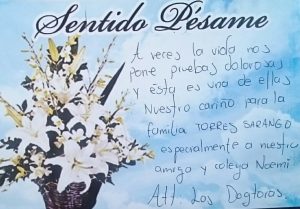 Sentido Pésame
A veces la vida nos
pone pruebas dolorosas
y ésta es una de ellas
Nuestro cariño para la
familia TORRES SARANGO
especialmente a nuestra
amiga y colega Noemi.
Att. Las Doctoras.